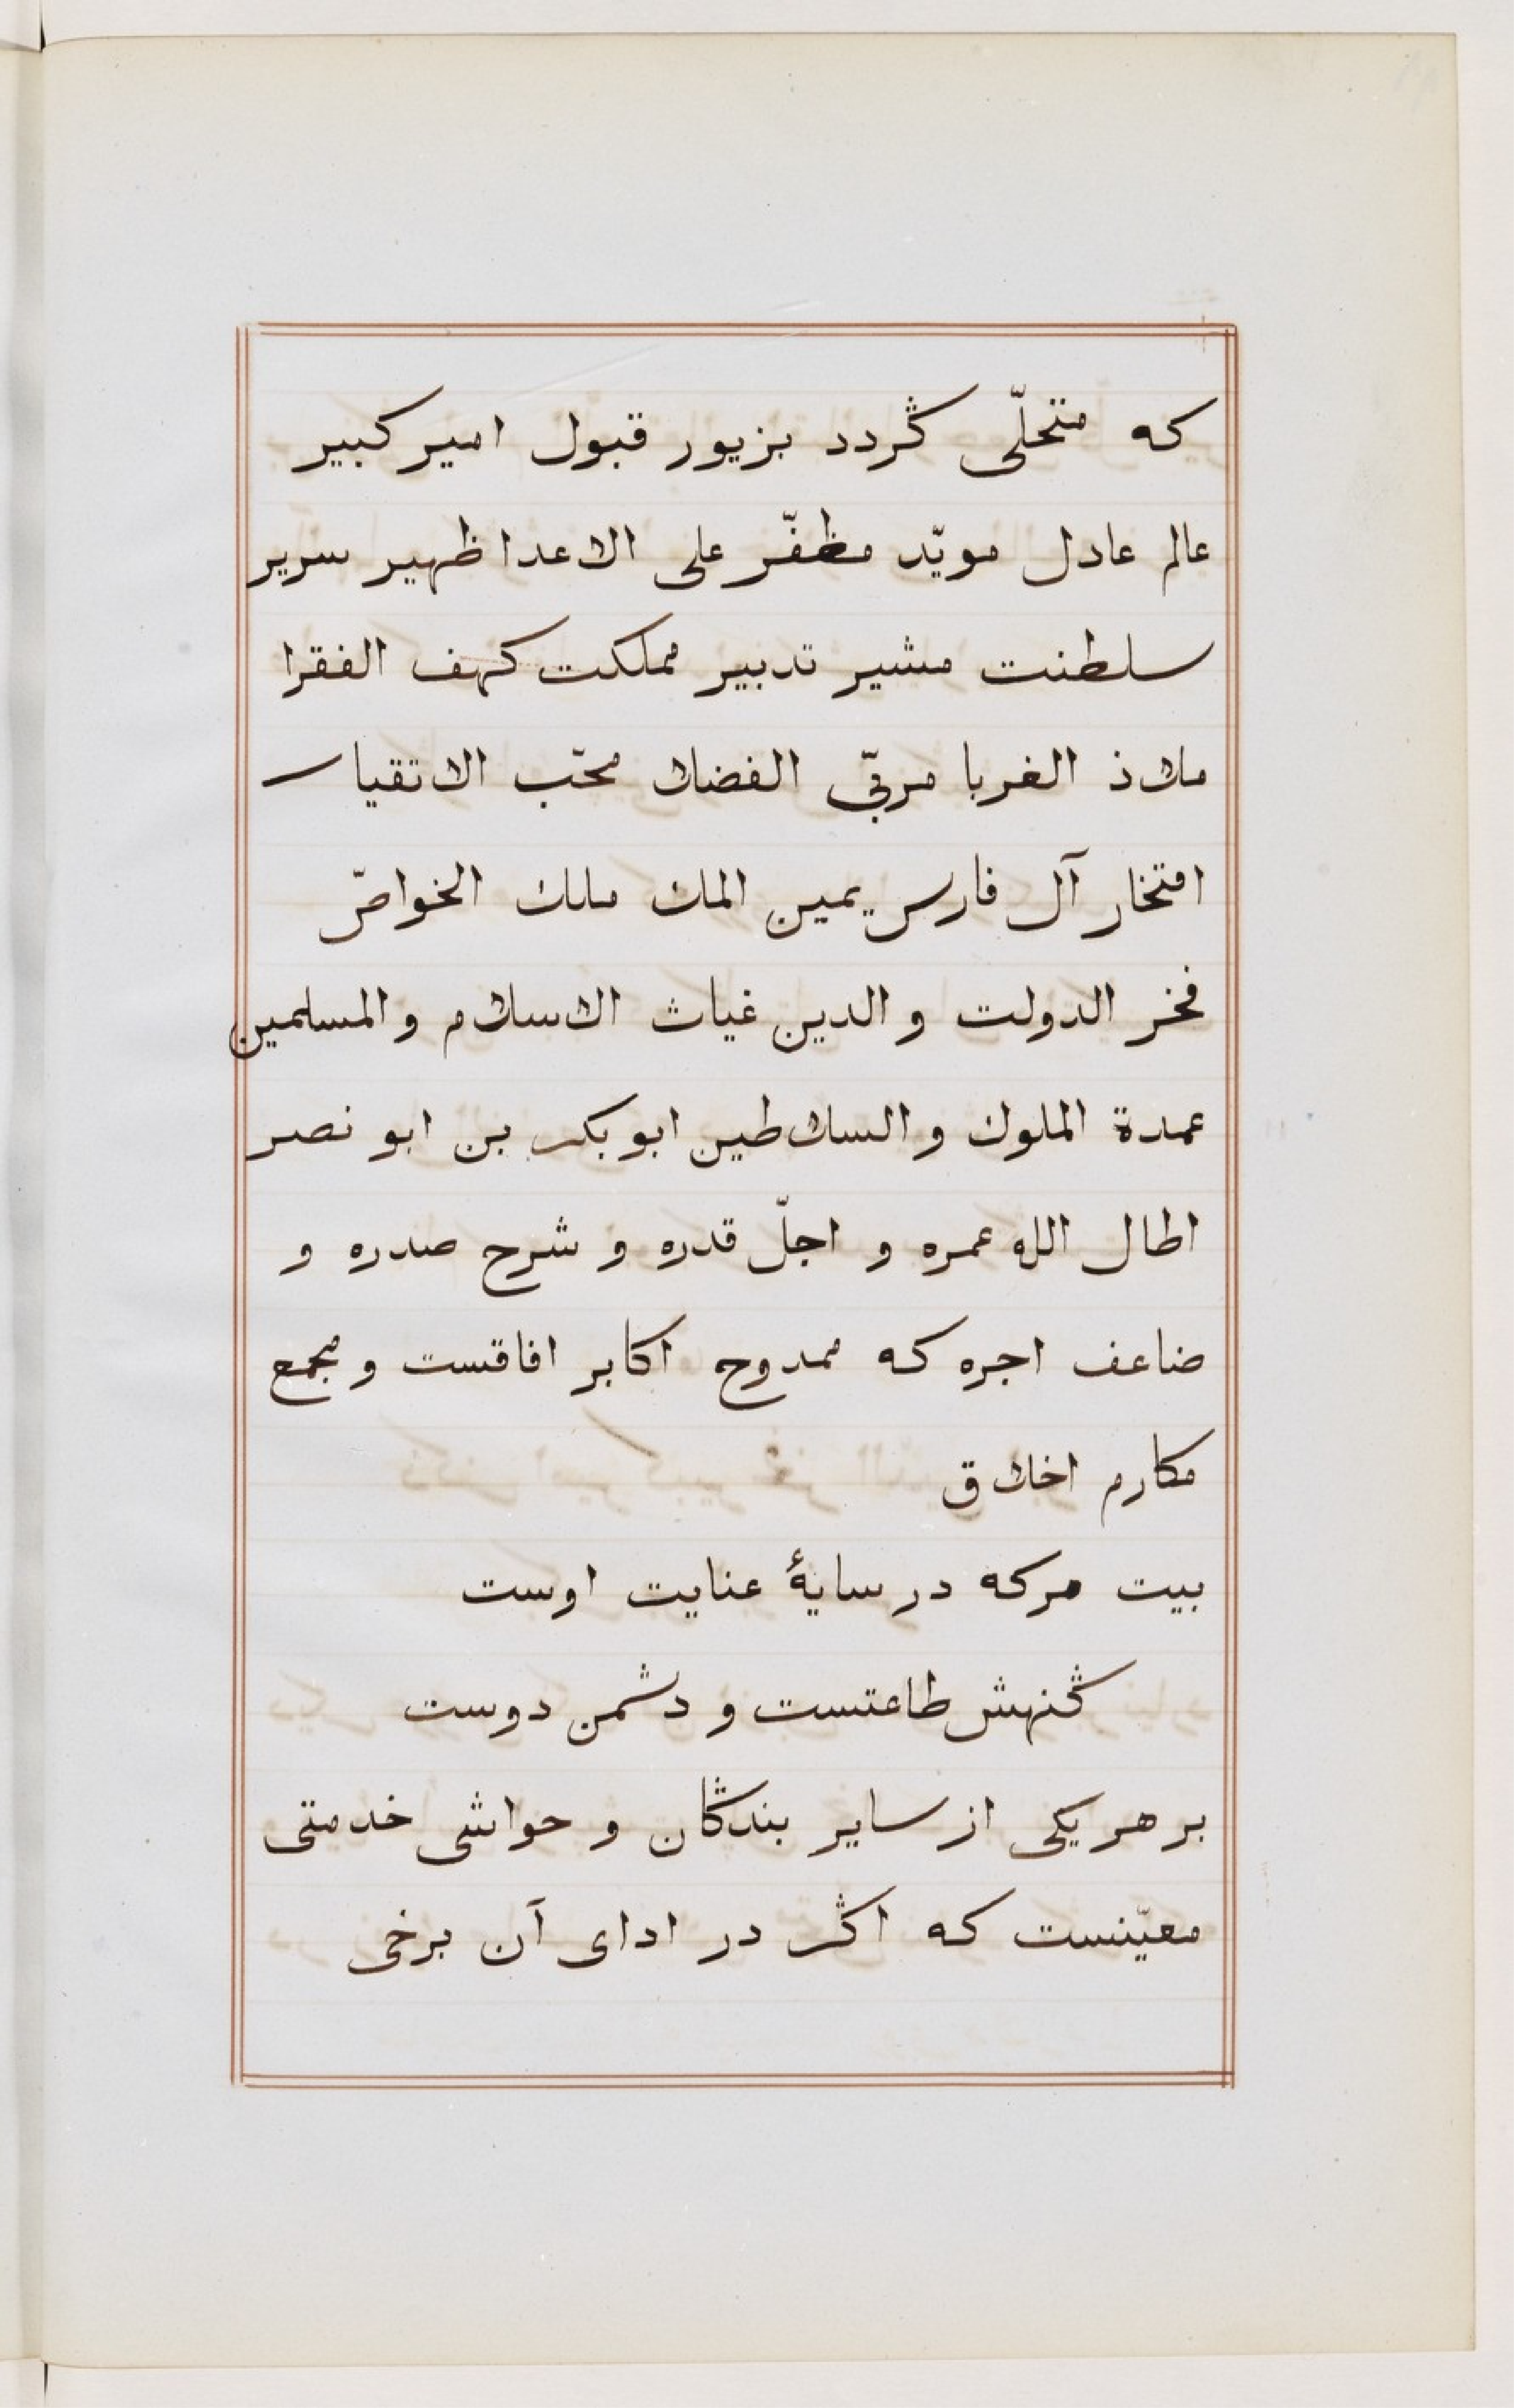 که متحلّی گردد بزیور قبول امیر کبیر
عالم عادل مویّد مظفّر علی الاعدا ظهیر سریر
سلطنت مشیر تدبیر مملکت کهف الفقرا
ملاذ الغربا مربّی الفضلا محبّ الاتقیا
افتخار آل فارس یمین الملک ملک الخواصّ
فخر الدولت والدین غیاث الاسلام والمسلمین
عمدة الملوك والسلاطین ابو بکر بن ابو نصر
اطال الله عمره و اجلّ قدره و شرح صدره و
ضاعف اجره که ممدوح اکابر افاقست و مجمع
مکارم اخلاق
بیت هرکه در سایهٔ عنایت اوست
گنهش طاعتست و دشمن دوست
بر هر یکی از سایر بندگان و حواشی خدمتی
معیّنست که اگر در ادای آن برخی